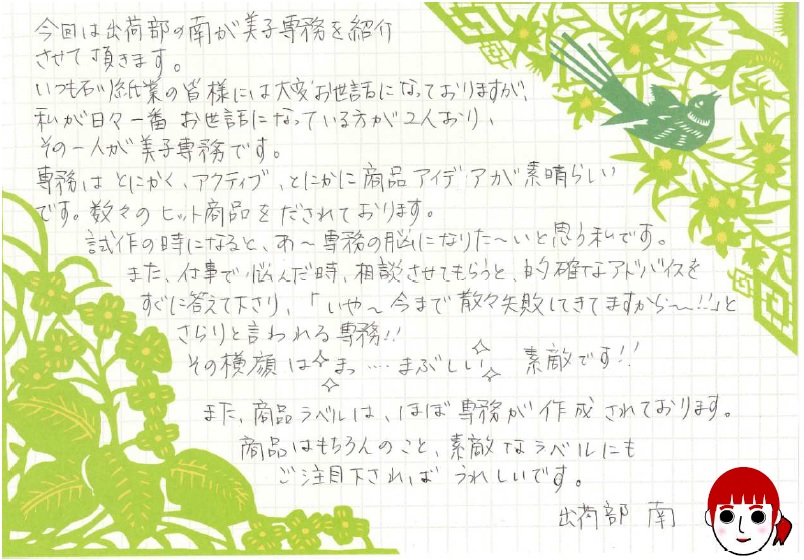 今回は出荷部の南が美子専務を紹介
させて頂きます。
いつも石川紙業の皆様には大変お世話になっておりますが、
私が日々一番お世話になっている方が2人おり、
その一人が美子専務です。
専務はとにかく、アクティブ、とにかに商品アイデアが素晴らしい
です。数々のヒット商品をだされております。
試作の時になると、あ〜専務の脳になりた〜いと思う私です。
また、仕事で悩んだ時、相談させてもらうと、的確なアドバイスを
すぐに答えて下さり、「いや〜今まで散々失敗してきてますから〜!!」と
さらりと言われる専務!!
その横顔はまっ‥‥まぶしい 素敵です!!
また、商品ラベルは、ほぼ専務が作成されております。
商品はもちろんのこと、素敵なラベルにも
ご注目下されば うれしいです。
出荷部 南